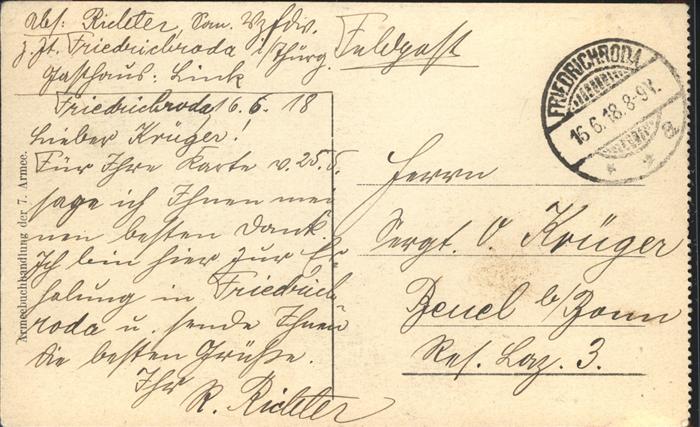 Abs: Richter, San. Vzfdw.
z. Zt. Friedrichroda i/Thürg.
Gasthaus: Link
Feldpost
FRIEDRICHRODA
16.6.18.8-9V.
a
Friedrichroda, 16.6.18
Lieber Krüger!
Für Ihre Karte v. 25.5.
sage ich Ihnen mei
nen besten Dank.
Ich bin hier zur Er-
holung in Friedrich
roda u. sende Ihnen
die besten Grüße.
Ihr
R. Richter
Herrn
Sergt. O. Krüger
Beuel b/Bonn
Res. Laz. 3.
Armeebuchhandlung der 7. Armee.